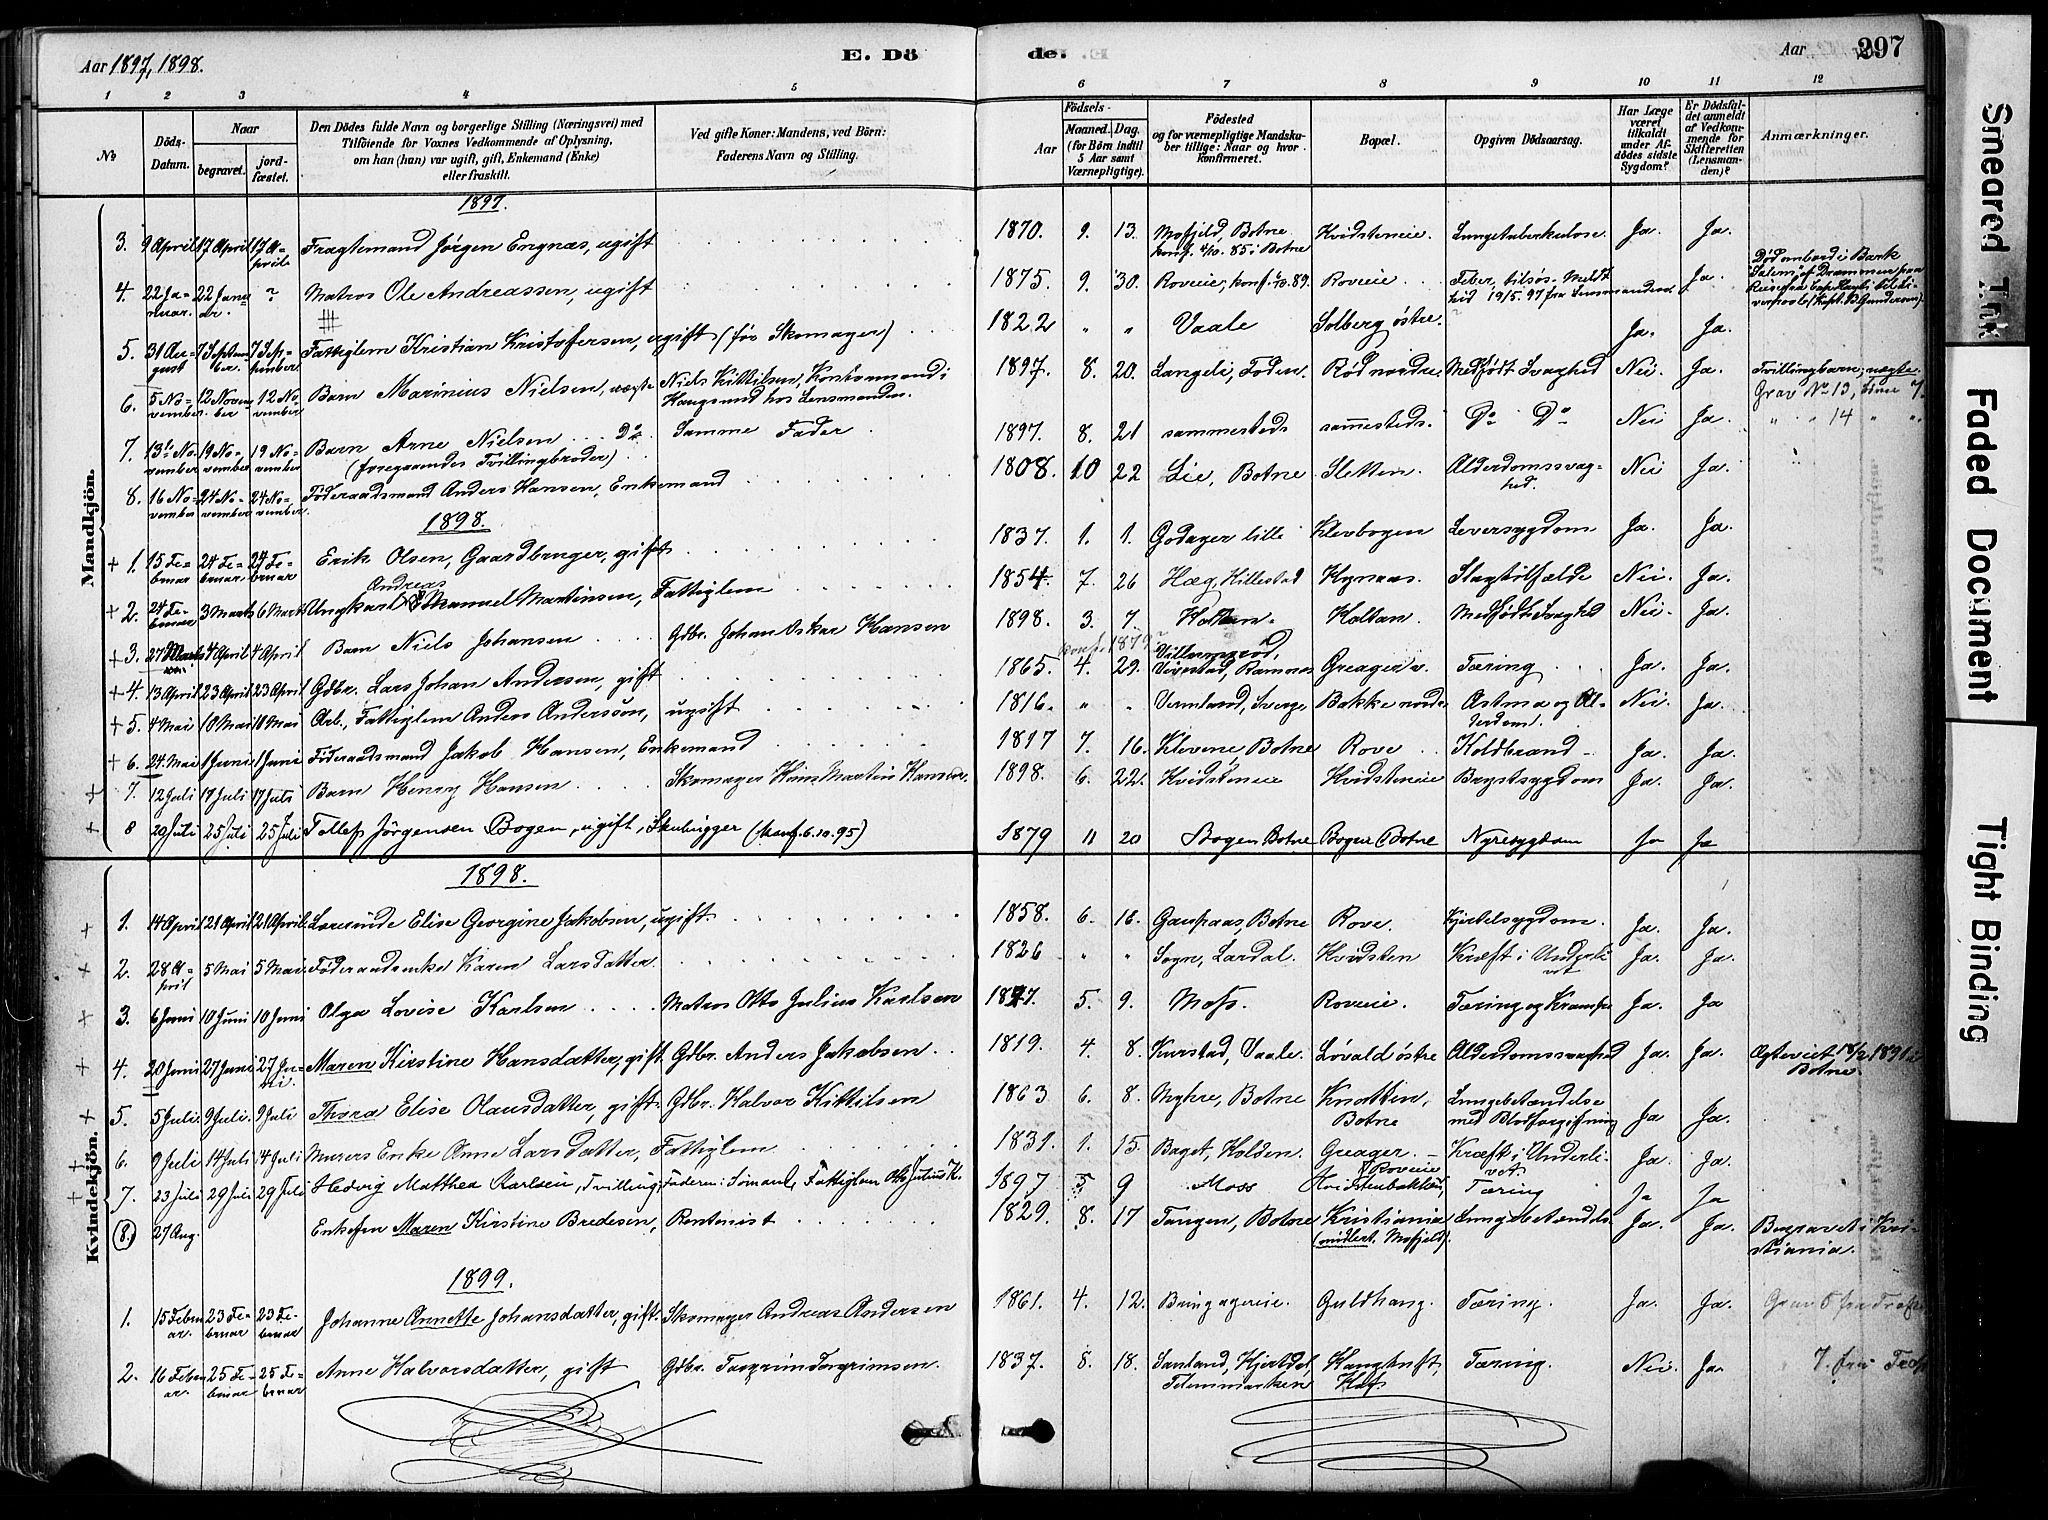 Aar 1897, 1898.
E. Dö
de.
Aar
297
1 2 3 4 5 6 7 8 9 10 11 12
No
Döds-Datum.
Naar
begravet.
jord-fæstet.
Den Dödes fulde Navn og borgerlige Stilling (Næringsvei) med
Tilföiende for Voxnes Vedkommende af Oplysning,
om han (hun) var ugift, gift, Enkemand (Enke)
eller fraskilt.
Ved gifte Koner: Mandens, ved Börn:
Faderens Navn og Stilling.
Födsels-
Aar
Maaned. Dag.
(for Börn indtil
5 Aar samt
Værnepligtige).
Födested
og for værnepligtige Mandska-
ber tillige: Naar og hvor
konfirmeret.
Bopæl.
Opgiven Dödsaarsag.
Har Læge
været
tilkaldt
under Af-
dødes sidste
Sygdom?
Er Dödsfal-
det anmeldt
af Vedkom-
mende for
Skifteretten
(Lensman-
den)?
Anmærkninger.
Mandkjön.
1897.
3. 9 April 17 April 17 April Fragtemand Jörgen Engnæs, ugift 1870. 9. 13. Mofjeld, Botne konf. 4/10. 85 i Botne Kvidsteneie. Lungetuberkulose. Ja. Ja.
4. 22 Januar. 22 Januar. ? Matros Ole Andreassen, ugift 1875. 9. 30. Roveie, konf. 89. Roveie Feber, tilsøs. Meldt hid 19/5. 97 fra Lensmanden Ja. Död ombord i Bark "Salem" af Drammen paa Reise fra
5. 31 August 7 September. 7 September Fattiglem Kristian Kristofersen, ugift (før Skomager) 1822 " " Vaale Solberg östre. ? Ja. Ja.
6. 5 November 12 November 12 November Barn Marinius Nielsen, ægte Niels Kittilsen, Kontormand i Haugsund hos Lensmanden. 1897. 8. 20. Langeli, Foden. Röd nordre Medfödt Svaghed Nei. Ja. Tvillingbarn, ægte Grav No 13, Linie 7.
7. 13de November 19 November 19 November Barn Arne Nielsen Do (foregaaendes Tvillingbroder) Samme Fader 1897. 8. 21 sammesteds sammesteds. Do Do Nei Ja. " " 14 " "
8. 16 November 24 November 24 November Föderaadsmand Anders Hansen, Enkemand 1808. 10 22 Lie, Botne Sletten. Alderdomssvaghed. Nei Ja.
1898.
+ 1. 15 Februar 24 Februar. 24 Februar Erik Olsen, Gaardbruger, gift 1837. 1. 1. Godager lille Klevbogen Leversygdom Ja. Ja.
+ 2. 24 Februar 3 Marts 6 Marts Ungkarl Andreas Emanuel Martinsen, Fattiglem 1854. 7. 26 Hæg, Hillestad Kynaas. Slagtilfælde Nei. Ja.
+ 3. 27 Marts 4 April 4 April Barn Niels Johansen Gdbr. Johan Oskar Hansen 1898. 3. 7. Holtan. Holtan. Medfødt Svaghed Nei. Ja.
konf. 1879?
+ 4. 13 April 23 April 23 April Gdbr. Lars Johan Andersen, gift 1865. 4. 29. Ramnes Greager v. Tæring Ja. Ja.
+ 5. 4 Mai 10 Mai 10 Mai Arb., Fattiglem Anders Anderssön, ugift 1816. " " Vermland, Sverge Bakke nordre Astma og Alderdom. Nei. Ja.
+ 6. 24 Mai 1 Juni 1 Juni Föderaadsmand Jakob Hansen, Enkemand 1817 7. 16. Klevene Botne Rove Koldbrand Ja. Ja.
+ 7. 12 Juli 17 Juli 17 Juli Barn Henry Hansen Skomager Hans Martin Hansen. 1898. 6. 22. Kvidsteneie Kvidsteneie Brystsygdom Ja. Ja.
+ 8 20 Juli 25 Juli 25 Juli Tollef Jörgensen Bogen, ugift, (konf. 6.10.95) 1879 11 20 Bogen Botne Bogen Botne Nyresygdom Ja Ja
Kvindekjön.
1898.
+ 1. 14 April 21 April 21 April. Elise Georgine Jakobsen, ugift 1858. 6. 16. Gaupaas, Botne Rove. Kjertelsygdom. Ja. Ja.
+ 2. 28 April 5 Mai 5 Mai Föderaadsenke Karen Larsdatter. 1826 " " Sogn, Lardal. Kvidsten Kræft i Underlivet Ja. Ja.
+ 3. 6 Juni 10 Juni 10 Juni Olga Lovise Karlsen Matros Otto Julius Karlsen 1897. 5. 9. Moss. Roveeie. Tæring og Krampe Ja. Ja
+ 4. 20 Juni 27 Juni 27 Juni. Maren Kirstine Hansdatter, gift Gdbr. Anders Jakobsen 1819. 4. 8. Kurstad, Vaale. Lövald östre Alderdomssvaghed Ja. Ja. Ægteviet Botne.
+ 5. 5 Juli. 9 Juli. 9 Juli Thora Elise Olausdatter, gift Gdbr. Halvor Kittilsen 1863 6. 8. Myhre, Botne Knatten, Botne Lungebetændelse med Blodforgiftning Ja Ja.
+ 6. 9 Juli 14 Juli 14 Juli Murers Enke Anne Larsdatter, Fattiglem 1831. 1. 15. Baget, Holden. Greager. Kræft i Underlivet. Ja. Ja.
+ 7. 23 Juli 29 Juli 29 Juli Hedvig Matthea Karlsen, Tvilling, Faderen: Sömand, Fattiglem Otto Julius K. 1897 5 9 Moss Roveeie Tæring Ja Ja
(8.) 27 Aug. Enkefru Maren Kirstine Bredesen, Rentenist 1829. 8. 17 Tangen, Botne Kristiania (midlert. Mofjeld). Lungebetændels. Ja. Ja. Begravet i Kristiania.
1899.
1. 15 Februar. 23 Februar 23 Februar Johanne Annette Johansdatter, gift. Skomager Andreas Andersen 1861. 4. 12. Bringagereie. Guldhaug. Tæring. Ja. Ja. Grav 5 fra
2. 16 Februar. 25 Februar 25 Februar Anne Halvorsdatter, gift Gdbr. Torgrim Torgrimsen. 1837. 8. 18. Sauland, Hjertdal, Telemmarken Haugtuft, Hof. Tæring. Nei. Ja. 7. fra
Smeared Ink
Faded Document
Tight Binding